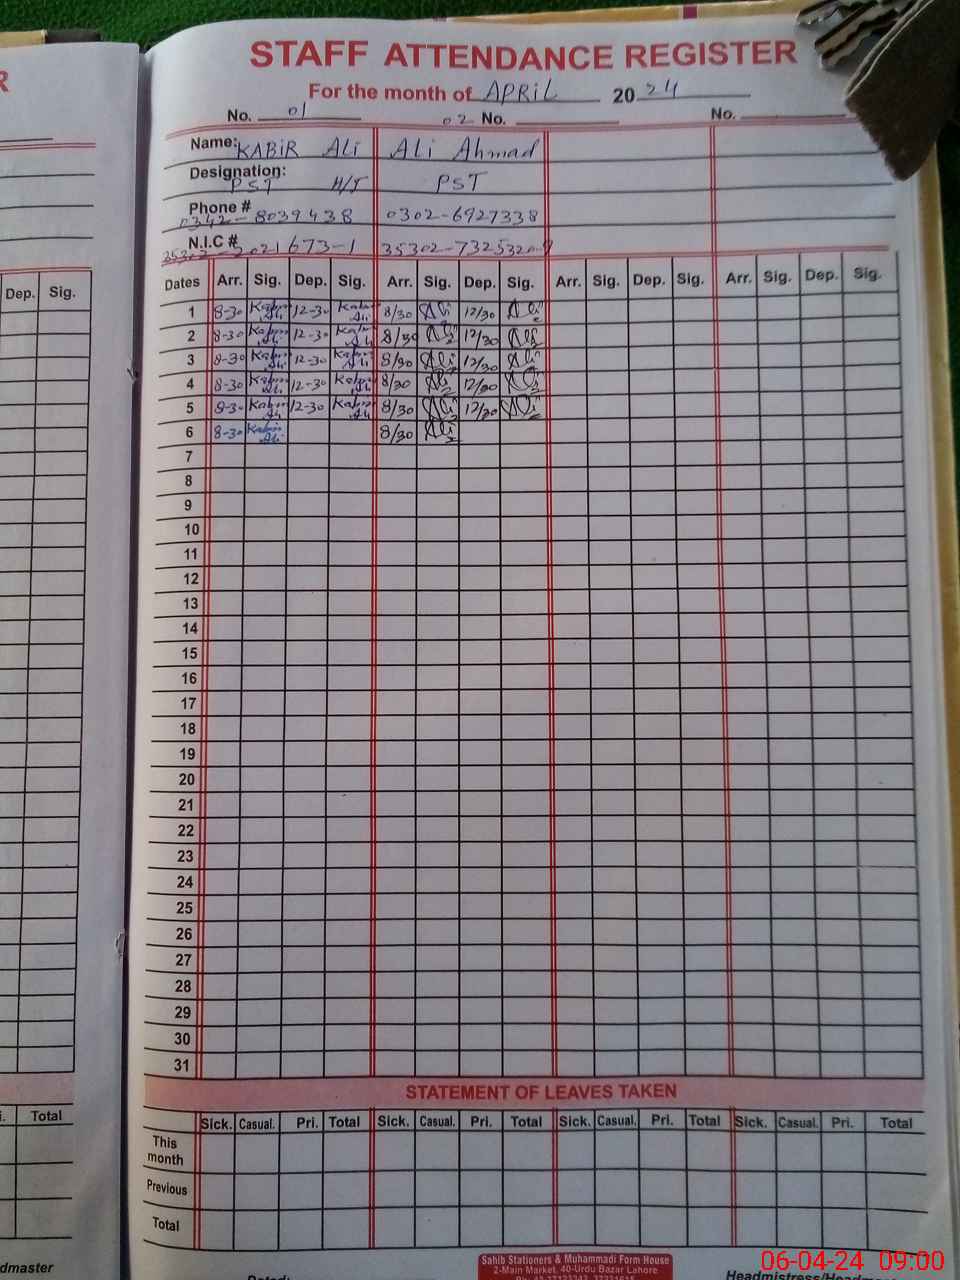 R
STAFF ATTENDANCE REGISTER
For the month of APRIL 2024
No. 01 02 No. No.
Name: KABIR Ali Ali Ahmad
Designation: PST H/T PST
Phone # 0342-8039438 0302-6927338
N.I.C # 35302-2021673-1 35302-7325320-9
Dep. Sig. Dates Arr. Sig. Dep. Sig. Arr. Sig. Dep. Sig. Arr. Sig. Dep. Sig. Arr. Sig. Dep. Sig.
1 8-30 Kabir Ali 12-30 Kabir Ali 8/30 Ali 12/30 Ali
2 8-30 Kabir Ali 12-30 Kabir Ali 8/30 Ali 12/30 Ali
3 8-30 Kabir Ali 12-30 Kabir Ali 8/30 Ali 12/30 Ali
4 8-30 Kabir Ali 12-30 Kabir Ali 8/30 Ali 12/30 Ali
5 8-30 Kabir Ali 12-30 Kabir Ali 8/30 Ali 12/30 Ali
6 8-30 Kabir Ali 8/30 Ali
7
8
9
10
11
12
13
14
15
16
17
18
19
20
21
22
23
24
25
26
27
28
29
30
31
STATEMENT OF LEAVES TAKEN
Total Sick. Casual. Pri. Total Sick. Casual. Pri. Total Sick. Casual. Pri. Total Sick. Casual. Pri. Total
This month
Previous
Total
dmaster
Dated:
Sahib Stationers & Muhammadi Form House
2-Main Market, 40-Urdu Bazar Lahore
Headmistress/Headm
06-04-24 09:00